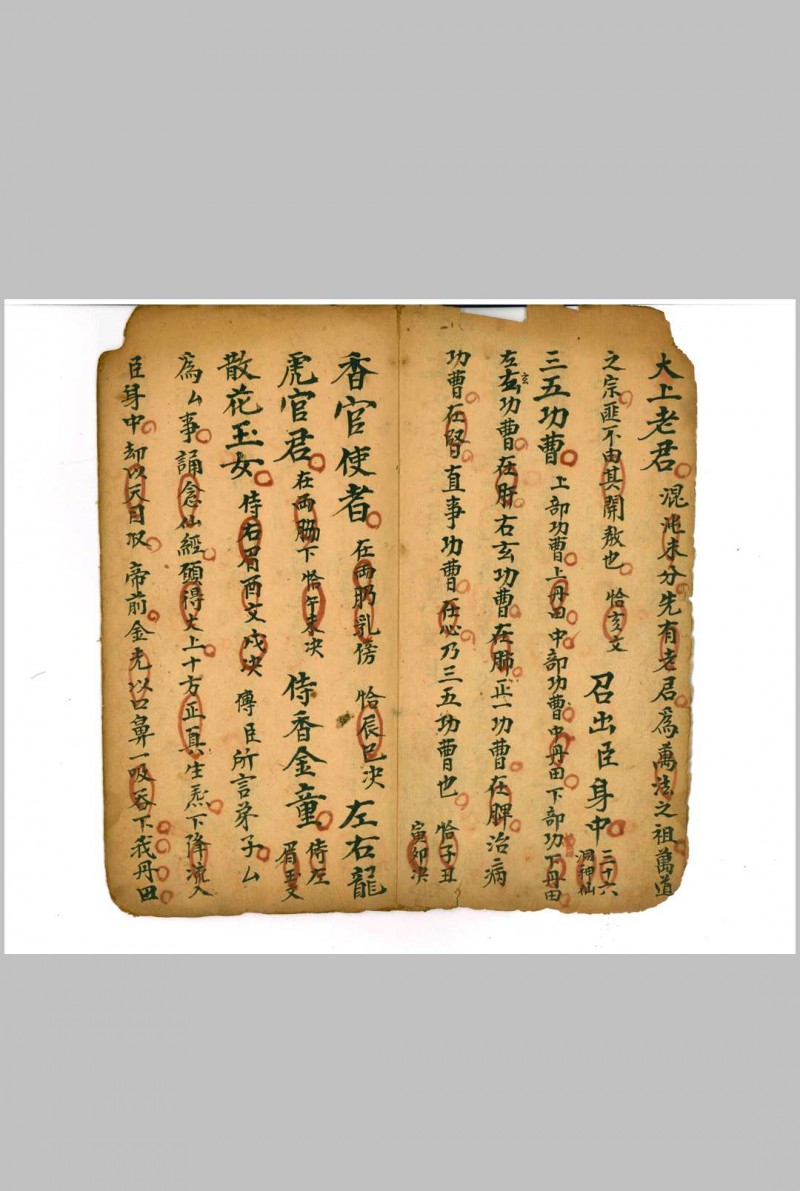 大上老君 混沌未分先有老君爲萬法之祖萬道
之宗匪不由其開敖也 恰亥文 召出臣身中 三十六洞神仙
三五功曹 上部功曹上丹田中部功曹中丹田下部功下丹田
左玄功曹在肝右玄功曹在肺正一功曹在脾治病
功曹在腎直事功曹在心乃三五功曹也 恰子丑寅卯决
香官使者 在両肭乳傍 恰辰巳决 左右龍
虎官君 在両脇下 恰午未决 侍香金童 侍左眉玉文
散花玉女 侍右眉酉文戌决 傳臣所言弟子厶
爲厶事誦念仙經願得大上十方正真生炁下降流入
臣身中却以天目収帝前金光以口鼻一吸吞下我丹田